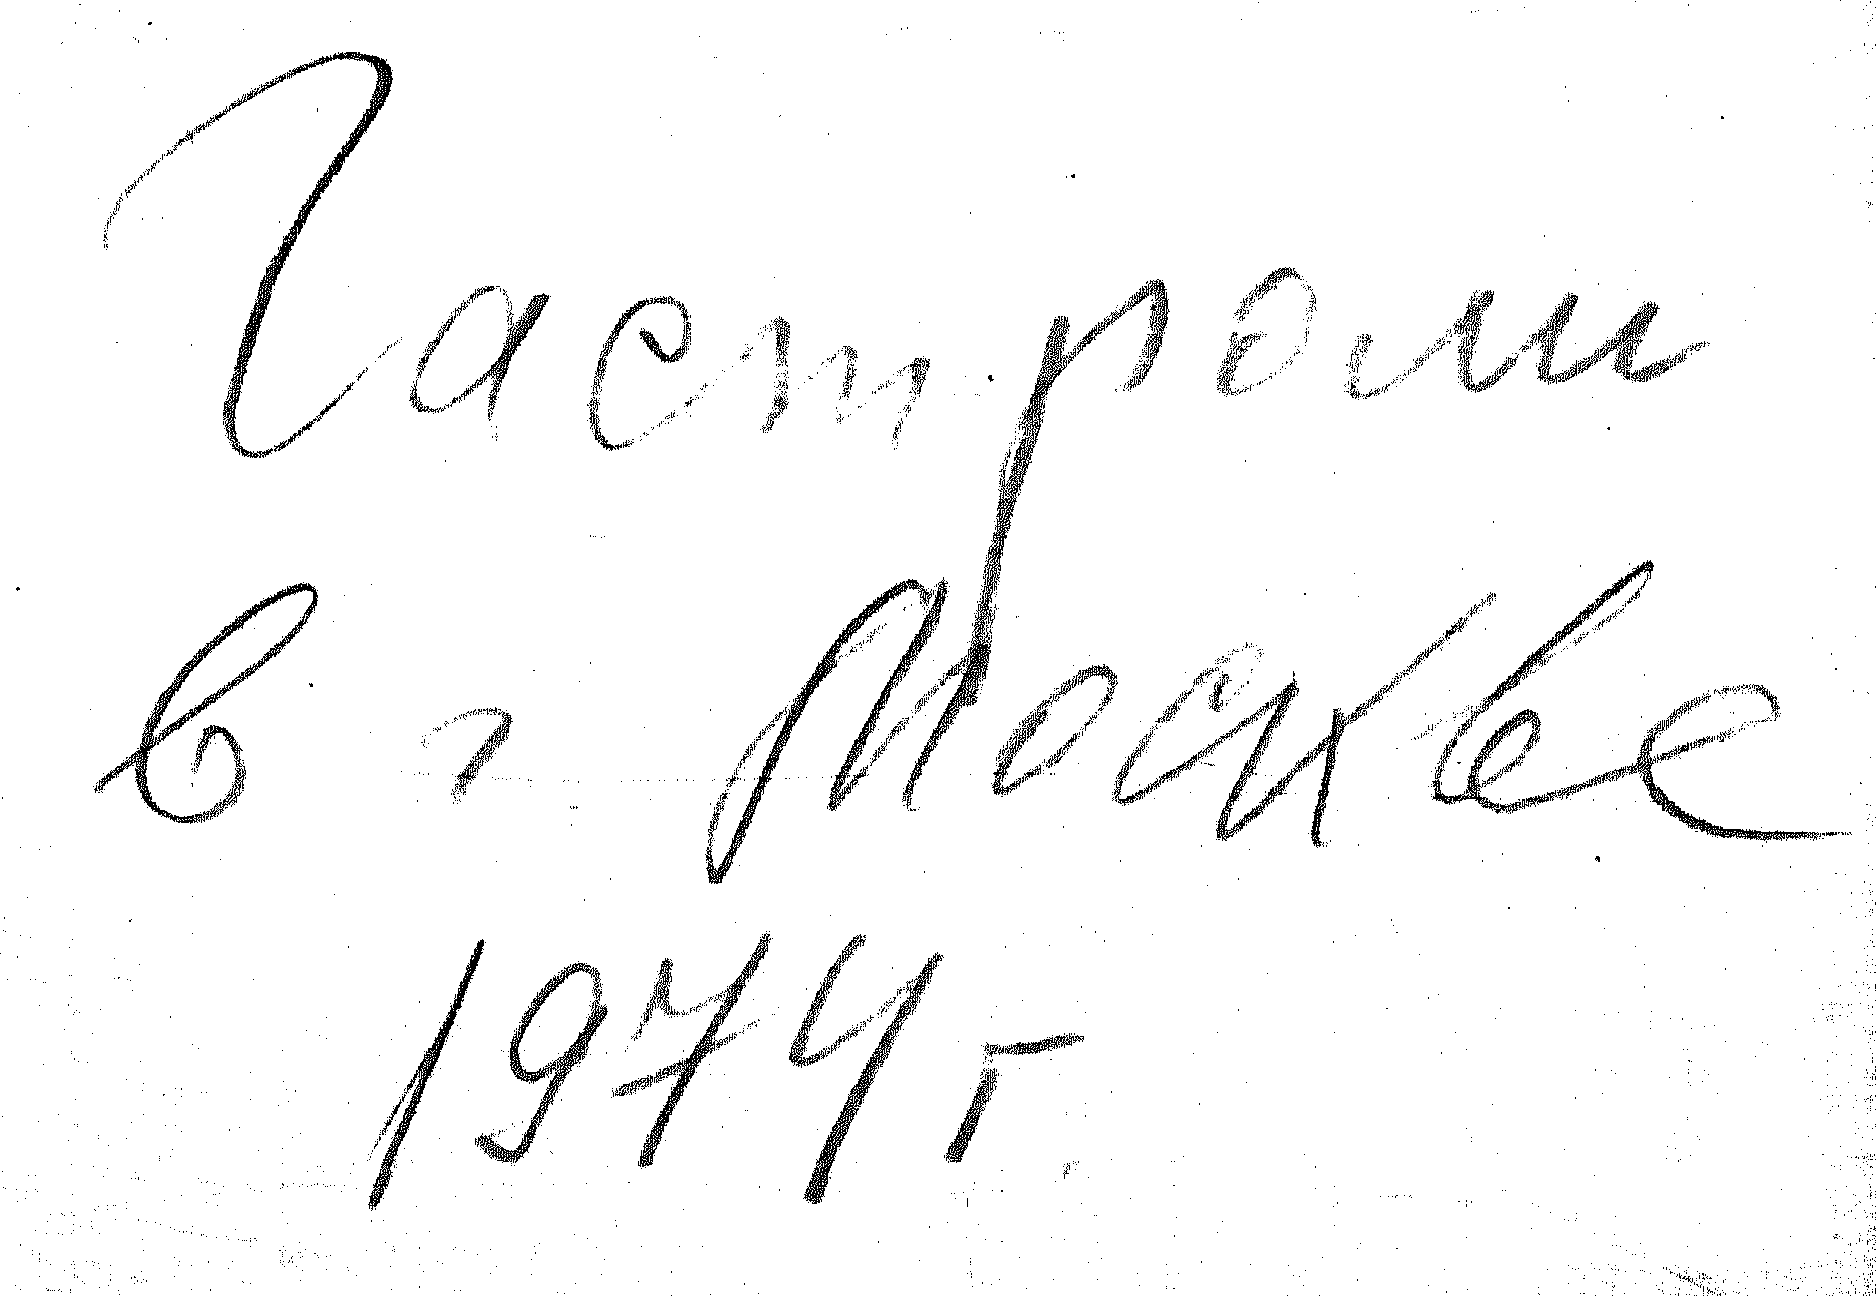 Гастроли
в г. Москве
1974 г